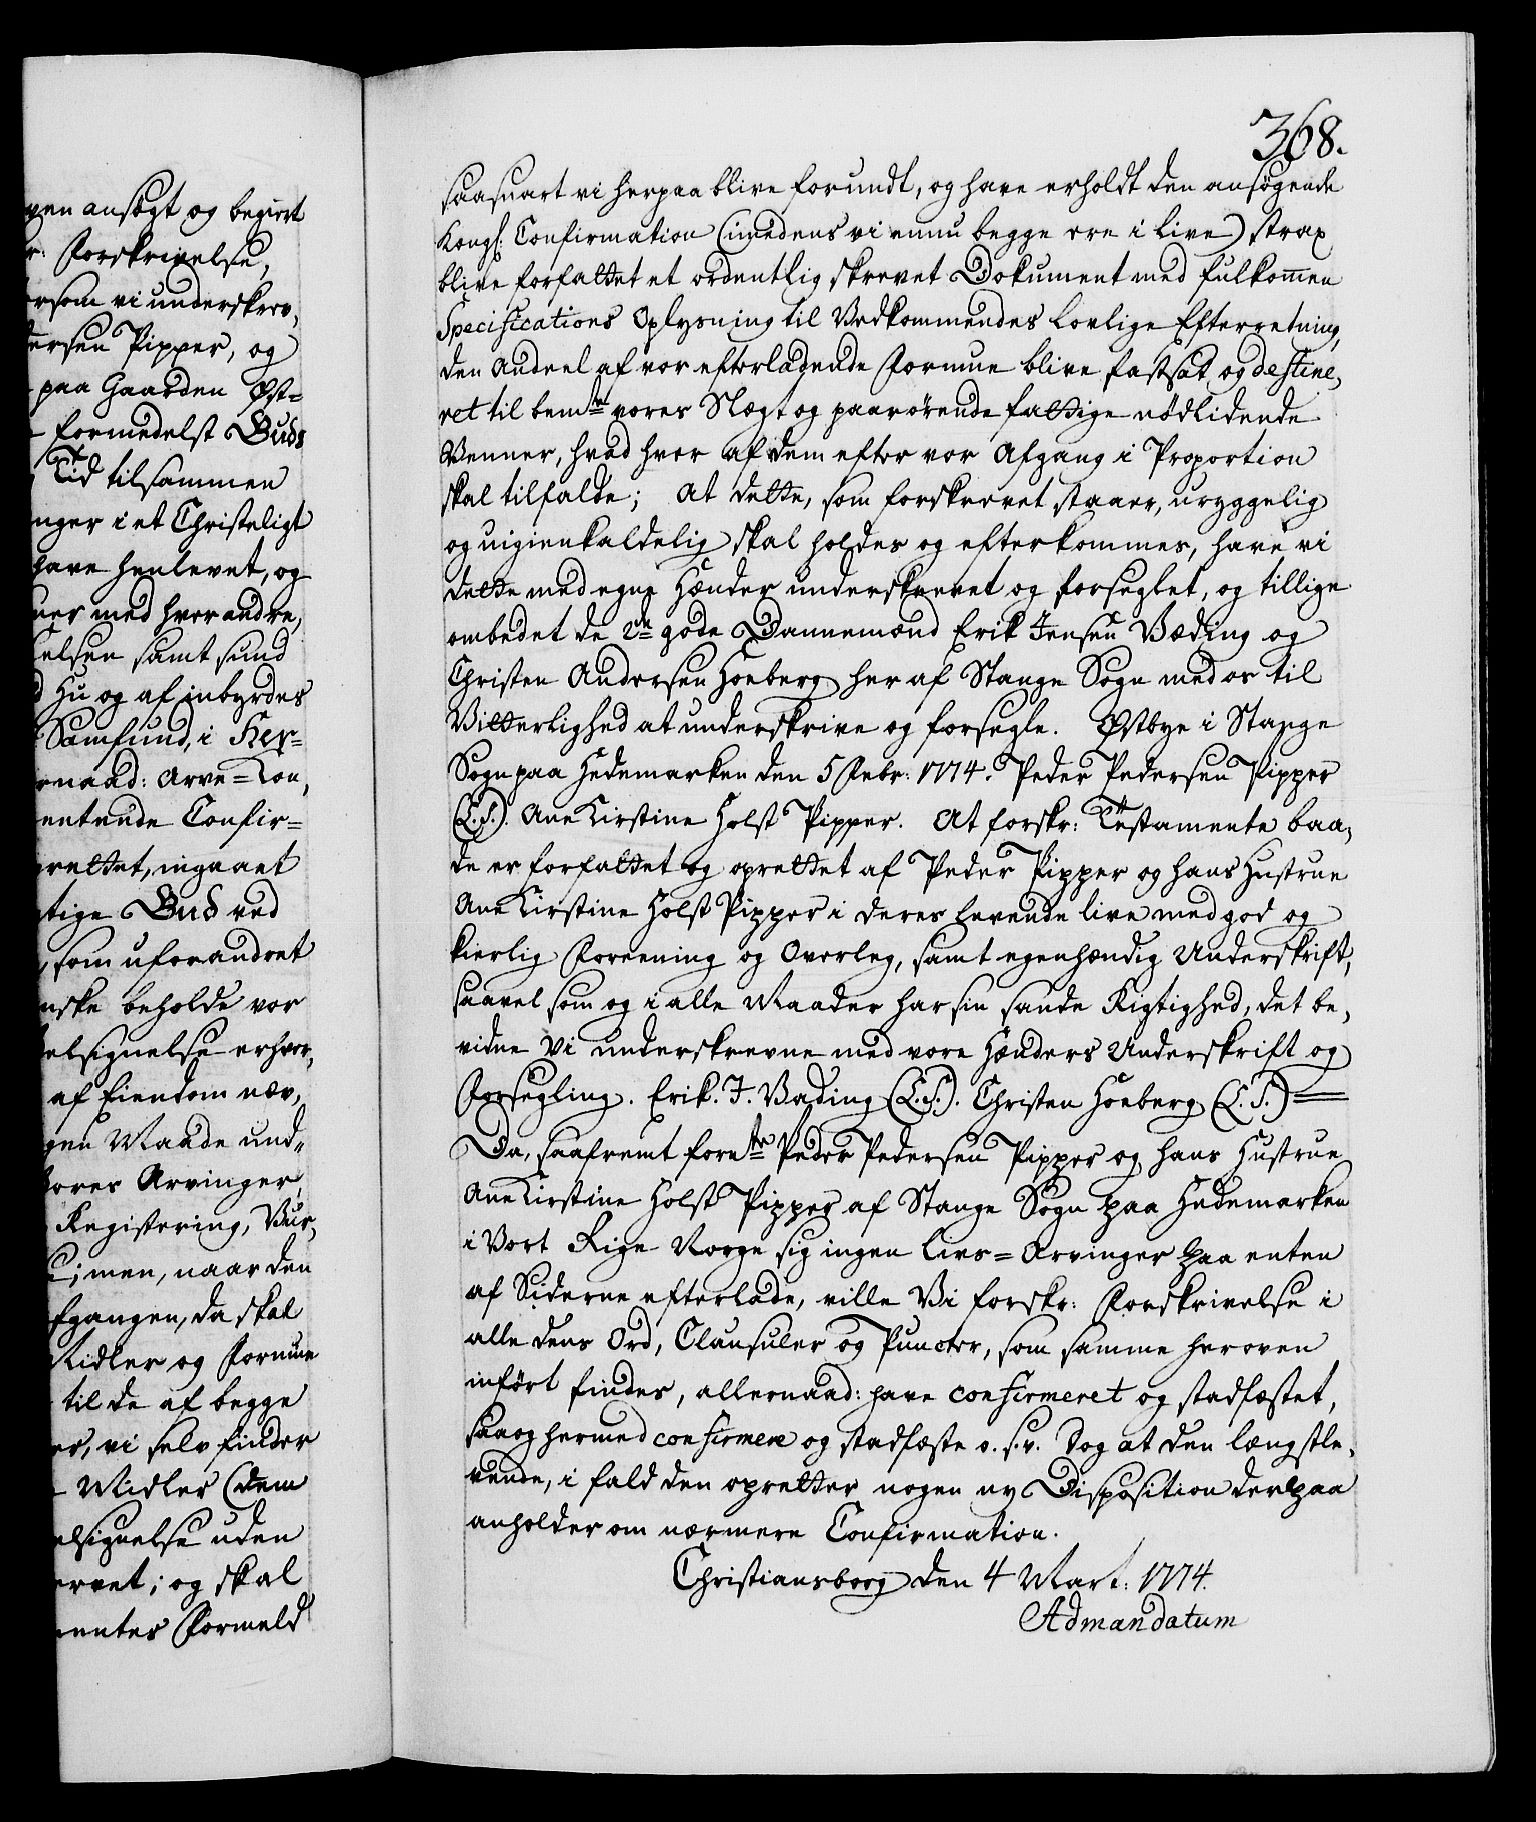 ven ansøgt og begiert
r: Forskrivelse,
rsom vi underskrev,
dersen Pipper, og
paa Gaarden Øst=
formedelst Guds
Tid tilsammen
nger i et Christeligt
have henlevet, og
med hverandre,
elsen samt sund
Hu og af inbyrdes
Samfund, i Her=
naad: Arve=Lou,
entende Confir=
rettet, ingaaet
tige Gud ved
som uforandret
nske beholde vor
elsignelse erhver,
af Eiendom næv,
gen Maade und=
vores Arvinger,
Registering, Vur,
men, naar den
fgangen, da skal
Midler og Formue
til de af begge
vi selv finder
Midler (dem
elsignelse uden
ervet; og skal
mentes Formeld
368.
saasnart vi herpaa blive forundt, og have erholdt den ansøgende
Kongl: Confirmation (imedens vi ennu begge ere i live) strax
blive forfattet et ordentlig skrevet Dokument med fulkom̅en
Specifications Oplysning til Vedkommendes lovlige Efterretning,
den Andeel af vor efterladende Formue blive fastsat og destine,
ret til bemte vores Slægt og paarørende fattige nødlidende
Venner, hvad hver af dem efter vor Afgang i Proportion
skal tilfalde; At dette, som forskrevet staaer, uryggelig
og uigienkaldelig skal holdes og efterkommes, have vi
dette med egne Hænder underskrevet og forseglet, og tillige
ombedet de 2de gode Dannemænd Erik Jensen Væding og
Christen Andersen Hoeberg her af Stange Sogn med os til
Vitterlighed at underskrive og forsegle. Østbye i Stange
Sogn paa Hedemarken den 5 Febr: 1774. Peder Pedersen Pipper
(L.S.). Ane Kirstine Holst Pipper. At forskr: Testamente baa,
de er forfattet og oprettet af Peder Pipper og hans Hustrue
Ane Kirstine Holst Pipper i deres levende live med god og
kierlig Foreening og Overleg, samt egenhændig Underskrift,
saavel som og i alle Maader har sin sande Rigtighed, det be,
vidne Vi underskrevne med vore Hænders Underskrift og
Forsegling. Erik. J. Væding (L.S.). Christen Hoeberg (L.S.) =
Da, saafremt fornte Peder Pedersen Pipper og hans Hustrue
Ane Kirstine Holst Pipper af Stange Sogn paa Hedemarken
i Vort Rige Norge sig ingen Livs=Arvinger paa enten
af Siderne efterlade, ville Vi forskr: Forskrivelse i
alle dens Ord, Clausuler og Puncter, som samme heroven
indført findes, allernaad: have confirmeret og stadfæstet,
saa og hermed confirmere og stadfæste o. s. v. Dog at den længstle,
vende, i fald den opretter nogen ny Disposition derpaa
anholder om nærmere Confirmation.
Christiansborg den 4 Mart: 1774.
Ad mandatum